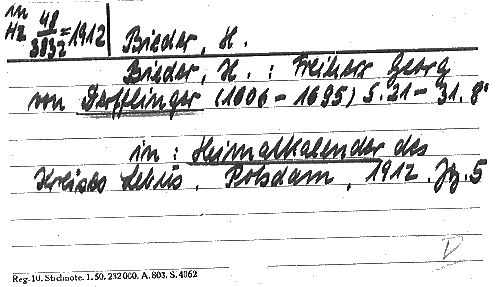 in
Hz 48/3832=1912
Bieder, H.
Bieder, H. : Freiherr Georg
von Derfflinger (1606-1695) S.21-31. 8°
in: Heimatkalender des
Kreises Lebus, Potsdam, 1912. Jg. 5
D
Reg. 10. Stichnote. 1. 50. 232000. A. 803. S. 4062